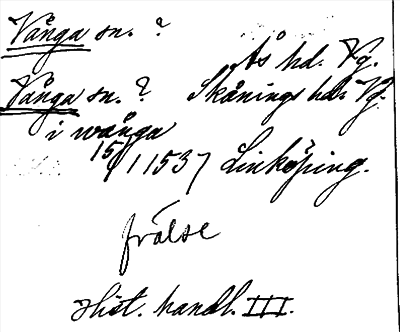 Vånga sn. ?
Ås hd. Vg.
Vånga sn. ? Skånings hd. Vg.
i wånga
15/1 1537 Linköping.
frälse
Hist. handl. III.